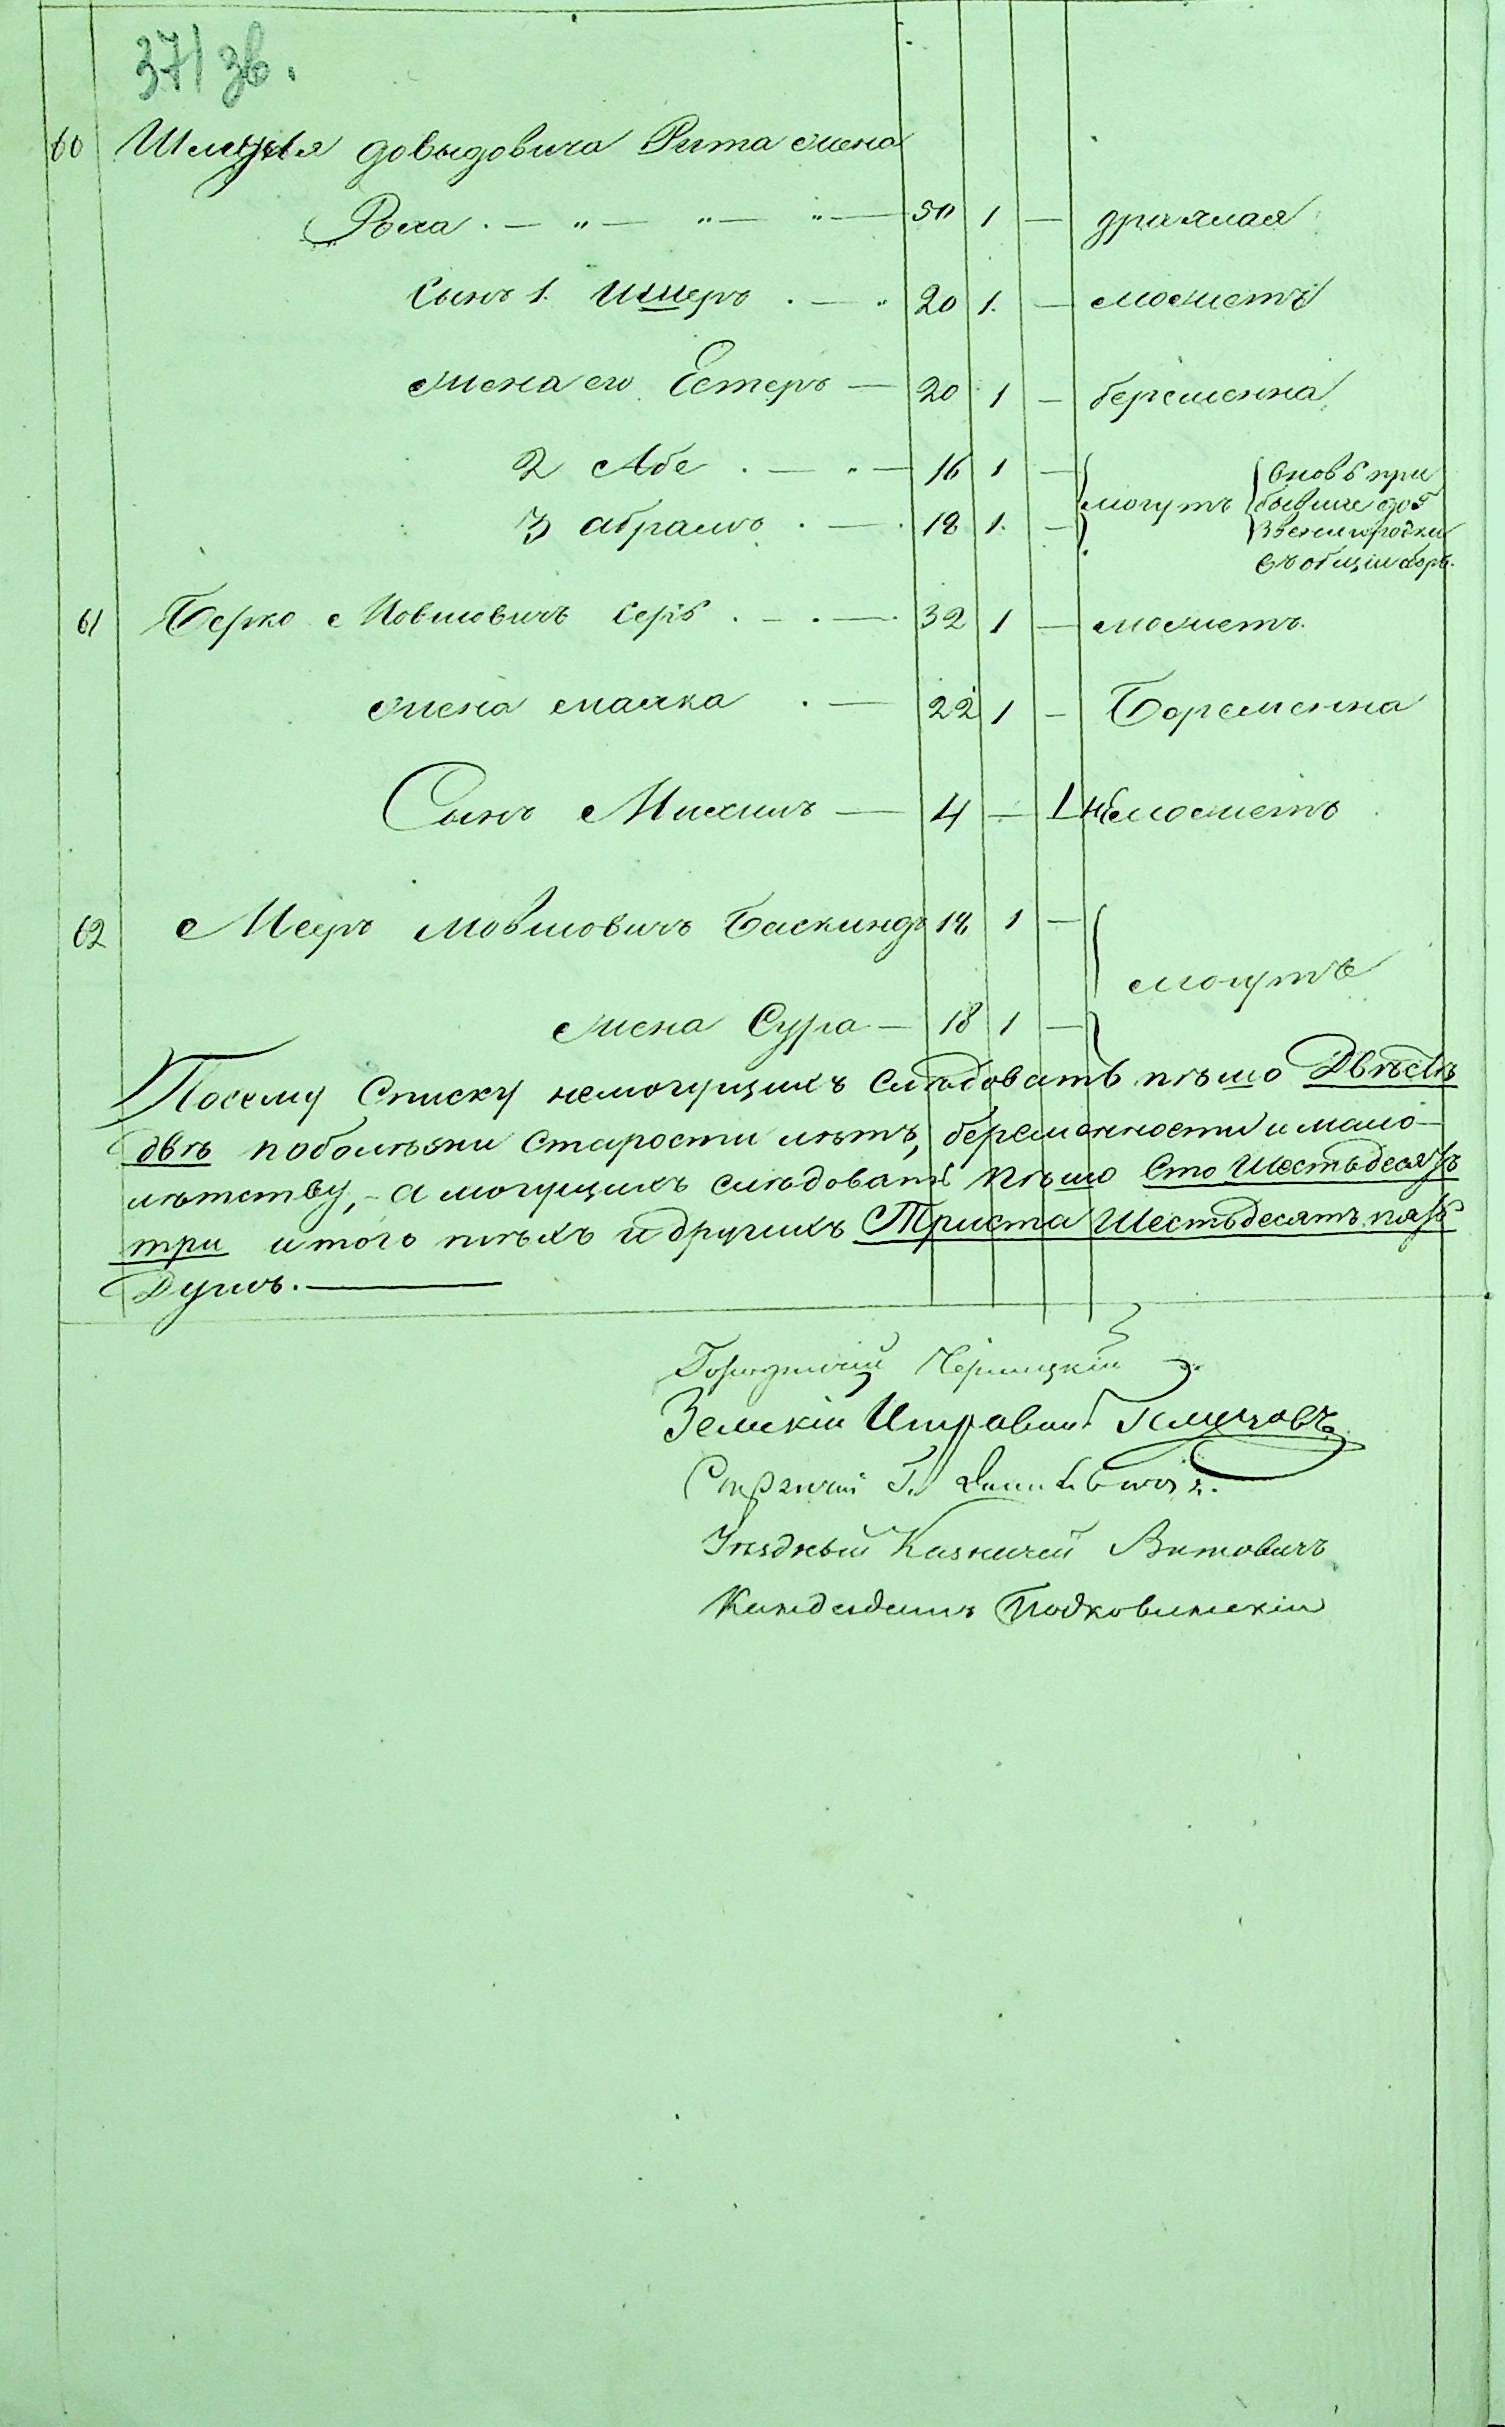 37/зв.
60 Шмуля Довыдовича Рита жена
Роха . — " — " — " — 50 1 — дряхлая
Сынъ 1. Ицеръ . — " 20 1. — можетъ
жена его Естеръ — 20 1 — беременна
2 Абе . — . — 16 1 — вновь при
могутъ бывшие
3 абрамъ . — . 18 1. — Звенигородки
61 Берко Мовшовичъ серъ . — . — 32 1 — можетъ.
жена малка . — 22 1 — Беременна
Сынъ Михиль — 4 — 1 неможетъ
62 Мееръ Мовшовичъ Баскиндъ 18 1 —
могутъ
жена Сура — 18 1 —
Посему Списку немогущихъ слѣдовать пѣшо Двѣстѣ
двѣ поболѣзни старости лѣтъ, беременности и мало-
лѣтству, - а могущихъ слѣдовать пѣшо Сто Шестьдесятъ
три итого тѣхъ и другихъ Триста Шестьдесятъ пять
Душъ. —
Городничий
Земскій Исправникъ
Стряпчій
Уѣздный Казначей Витовичъ
Кандидатъ Подковинскій